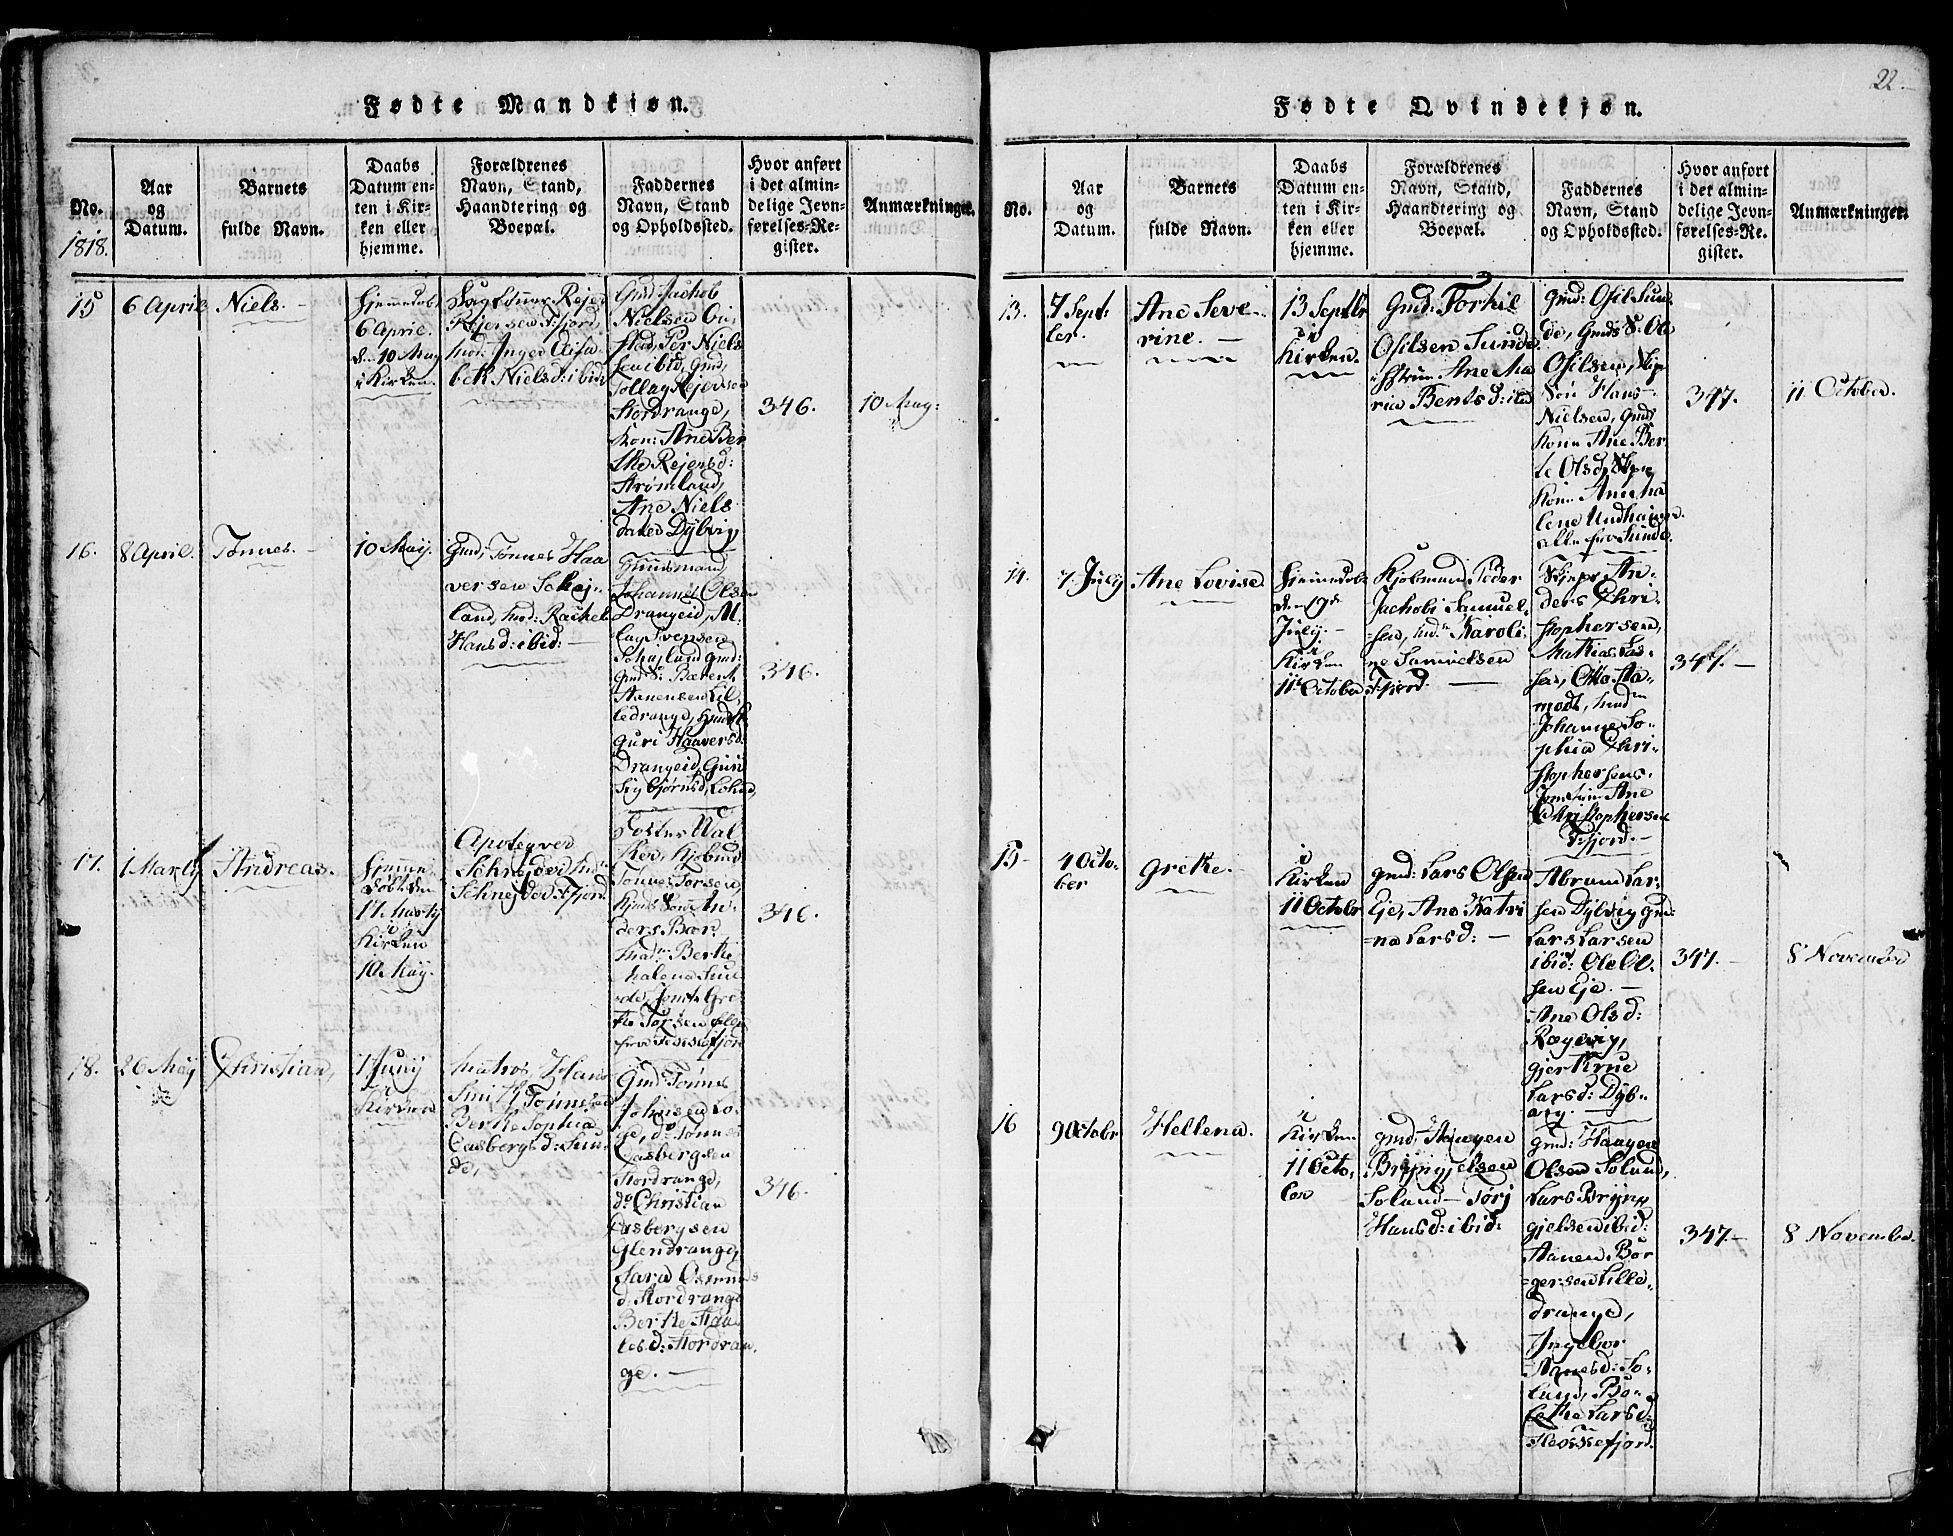 Fødte Mandkjøn.
No.
1818.
Aar
og
Datum.
Barnets
fulde Navn.
Daabs
Datum en-
ten i Kir-
ken eller
hjemme.
Forældrenes
Navn, Stand,
Haandtering og
Boepæl.
Faddernes
Navn, Stand
og Opholdssted.
Hvor anført
i det almin-
delige Jevn-
førelses-Re-
gister.
Anmærkninger.
15
6 April
Niels.
Hjemmedøbt
6 April.
10 May
i Kirken.
Rejer
Rejersen Fjord,
Inger Elisa
bek Nielsd: ibid
Gmd: Jachob
Nielsen
Per Niels
sen ibid, Gmd,
Tollag Rejersen
Stordrange,
Kon: Ane Ber
the Rejersd:
Strømland,
Ane Niels
datter Dybvig
346.
10 May.
16.
8 April.
Tønnes.
10 May.
Gmd: Tønnes Haa
versen Schej-
land, hud: Rachel
Hansd: ibid:
Gaardsmand
Johannes Olsen
Drangeid,
lag Svensen
Schejland gmd:
gmd S: Bærent
Aanensen Lil
ledrange,
Guri Haaversd:
Drangeid, Guri
Bjørnsd,
346.
17.
1 Marty
Andreas.
Hjemme
døbt den
17 Marty
i
Kirken
10 May.
Apoteqver
Schnejder
Schnejder Fjord.
Foster Wal
ker, Kjøbmd
Tønnes Torsen,
Kjmds Søn An
ders Bær,
Mad. Berthe
Malena Sun
de, Jomf. Gre
the Torsen alle
fra Fedefjor
346.
18.
26 May
Christian,
1 Juny
i
Kirken
Matros Hans
Smith Tønnesen
Berthe Sophia
Casbergsd: Sun
de,
Gmd: Tønnes
Johnsen Lo
ge, do Tønnes
Casbergsen
Stordrange,
do Christian
Casbergsen
Glendrange,
Sara Osmunds
d: Stordrange
Berthe Haa
lesd: Stordran
ge.
346.
22
Fødte Qvindekjøn.
No.
Aar
og
Datum.
Barnets
fulde Navn.
Daabs
Datum en-
ten i Kir-
ken eller
hjemme.
Forældrenes
Navn, Stand,
Haandtering og
Boepæl.
Faddernes
Navn, Stand
og Opholdssted.
Hvor anført
i det almin-
delige Jevn-
førelses-Re-
gister.
Anmærkninger.
13.
7 Septb
ler.
Ane Seve-
rine.
13 Septbr
i
Kirken.
Gmd: Torkil
Osilsen Sunde
Hstrue Ane Ma
ria Bentsd: ibid
Gmd: Osil Sun
de, Gmds S: Ole
Osilsen,
Søn Hans
Nielsen, Gmds
Kone Ane Ber
te Olsd,
Kone Ane Ma
lene Undhammer
alle fra Sunde.
347.
11 October.
14.
7 July
Ane Lovise.
Hjemmedøbt
den 19de
July.
i
Kirken
11te October
Kjøbmand Peder
Jachobi Samuel-
sen, hud: Karoli
ne Samuelsen
Fjord.
Skjeper An-
ders Chri-
stophersen,
Mathias Las-
sen, Otto Sta-
modt, hud
Johanne So-
phia Chri-
stophersens.
Jomfrue Ane
Christophersen
Fjord.
347.
15
4 Octo-
ber
Grethe.
i
Kirken
11 Octobr
gmd: Lars Olsen
Eje, Ane Katri
na Larsd:
Abram Lar-
sen Dybvig gmd:
Lars Larsen
ibid: Ole Ol-
sen Eje.
Ane Olsd:
Rægevig,
gjertrue
Larsd: Dyb-
vig.
347.
8 November
16
9 Octobr
Hellena.
i
Kirken
11 Octo-
ber
gmd: Haagen
Bryngjelsen
Soland - Sørj
Hansd: ibid:
gmd: Haagen
Olsen Soland,
Lars Bryn
gjelsen ibid:
Aanen Bør
gersen Lille-
drange,
Ingebor
Aanesd: So-
land, Bo-
lethe Larsd:
Rossefjord.
347.
8 November.